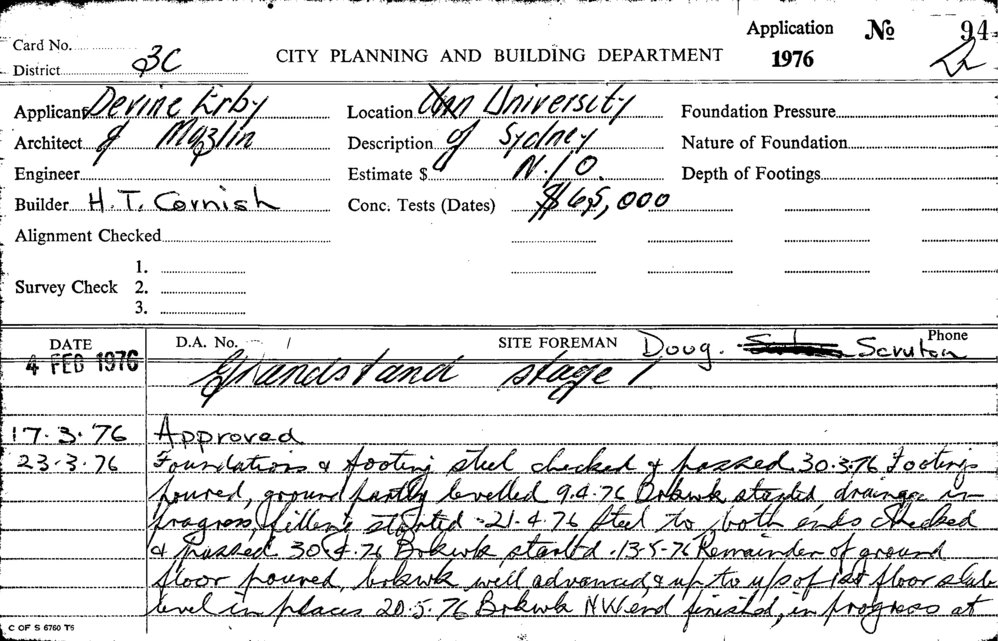 Application № 94
Card No.
District 3C
CITY PLANNING AND BUILDING DEPARTMENT
1976
Applicant Devine Erby
Location University
Foundation Pressure
Architect & Mazlin
Description of Sydney
Nature of Foundation
Engineer
Estimate $ N.10.
Depth of Footings
Builder H. T. Cornish
Conc. Tests (Dates) $65,000
Alignment Checked
1.
Survey Check 2.
3.
DATE D.A. No. / SITE FOREMAN Doug. Scruton Phone
4 FEB 1976
Grandstand stage 1
17.3.76 Approved
23.3.76 Foundations & footing steel checked & passed. 30.3.76 Footings
poured, ground partly levelled 9.4.76 Brkwk started, drainage in
progress, filling started. 21.4.76 Steel to both ends checked
& passed 30.4.76 Brkwk started. 13.5.76 Remainder of ground
floor poured, brkwk well advanced, & up to u/s of 1st floor slab
level in places 20.5.76 Brkwk NW end finished, in progress at
C OF S 6760 T5